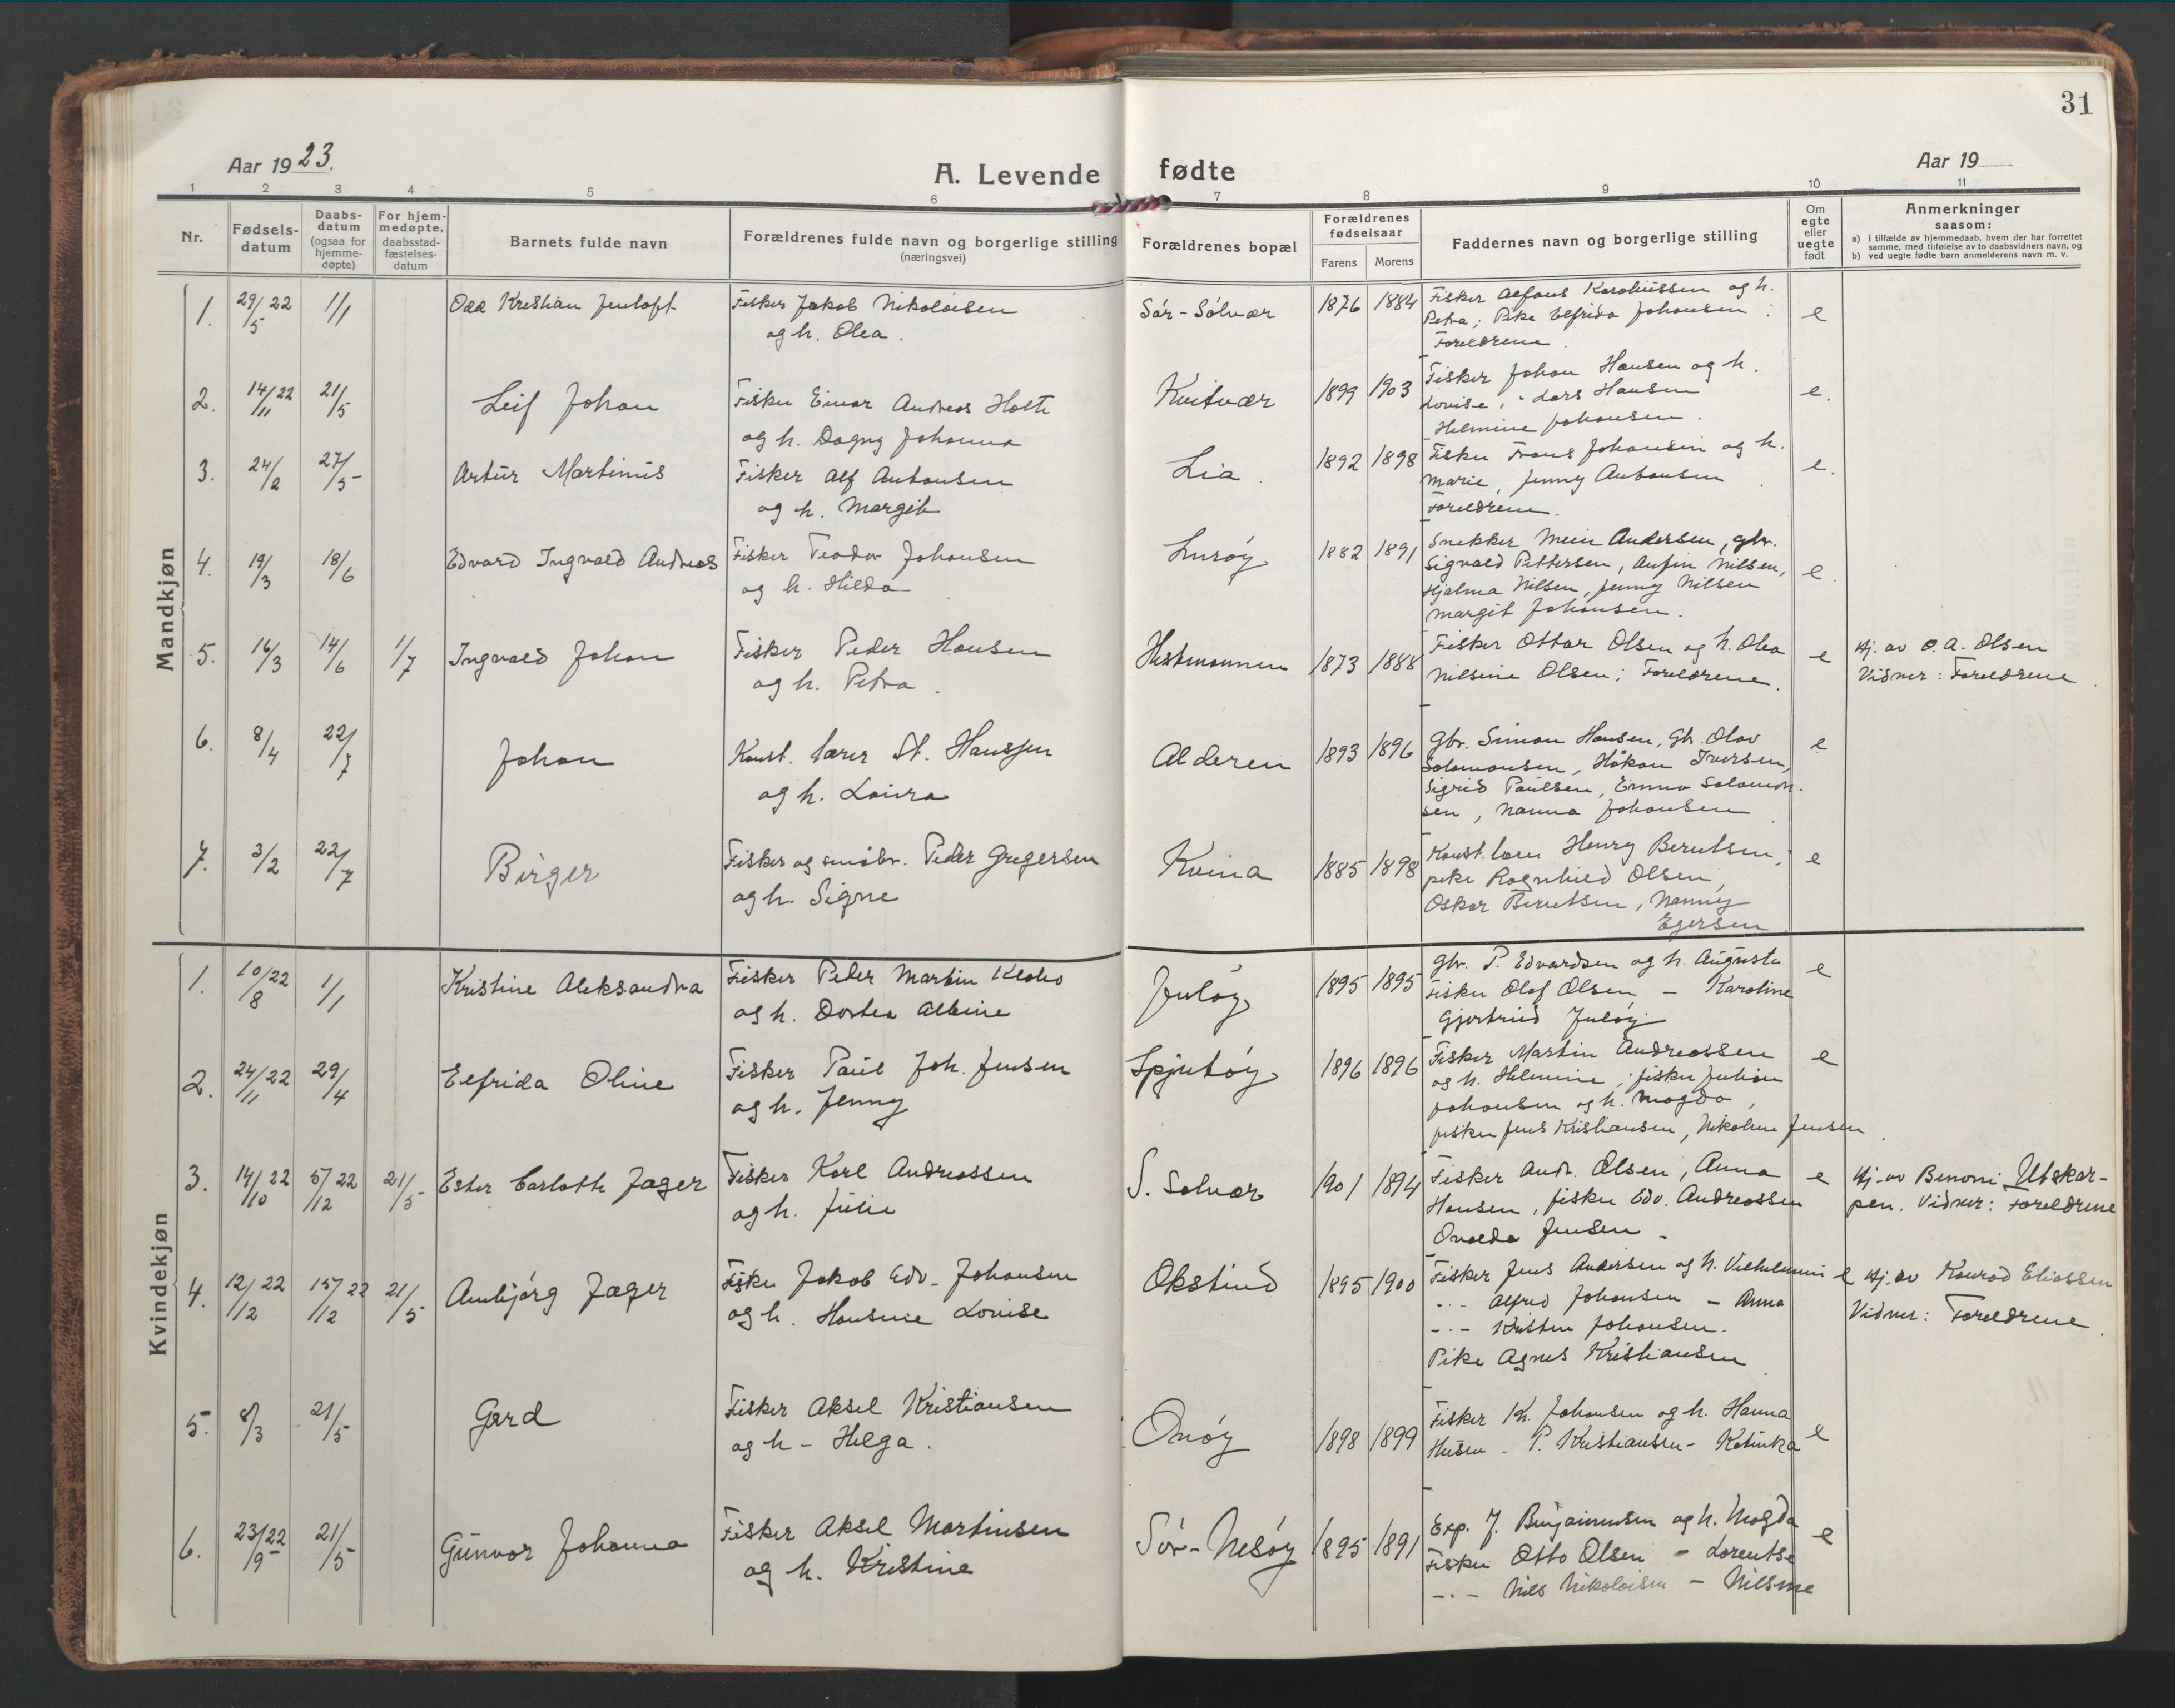 31
Aar 1923.
A. Levende fødte
Aar 19
1 2 3 4 5 6 7 8 9 10 11
Nr.
Fødsels-datum
Daabs-datum (ogsaa for hjemme-døpte)
For hjem-medøpte, daabsstad-fæstelses-datum
Barnets fulde navn
Forældrenes fulde navn og borgerlige stilling (næringsvei)
Forældrenes bopæl
Forældrenes fødselsaar
Farens Morens
Faddernes navn og borgerlige stilling
Om egte eller uegte født
Anmerkninger saasom:
a) i tilfælde av hjemmedaab, hvem der har forrettet samme, med tilføielse av to daabsvidners navn, og
b) ved uegte fødte barn anmelderens navn m. v.
Mandkjøn
1. 29/5 22 1/1 Odd Kristian Jentoft Fisker Jakob Nikolaisen Sør-Sølvær 1876 1884 Fisker Alfons Karolinssen og h. e
og h. Olea. Petra; Pike Elfrida Johansen;
Foreldrene.
2. 14/11 22 21/5 Leif Johan Fisker Einar Andreas Holte Kvitvær 1899 1903 Fisker Johan Hansen og h. e.
og h. Dagny Johanna Lovise, " Lars Hansen
Helmine Johansen.
3. 24/2 27/5 Artur Martinus Fisker Alf Antonsen Lia 1892 1898 Fisker Frans Johansen og h. e.
og h. Margit Marie, Jenny Antonsen
Foreldrene.
4. 19/3 18/6 Edvard Ingvald Andreas Fisker Teodor Johansen Lurøy 1882 1891 Snekker Meier Andersen, gbr. e.
og h. Hilda Sigvald Pettersen, Anfin Nilsen,
Hjalma Nilsen, Jenny Nilsen
Margit Johansen.
5. 16/3 14/6 1/7 Ingvald Johan Fisker Peder Hansen Hestmannen 1873 1888 Fisker Ottar Olsen og h. Olea e Hj. av O. A. Olsen
og h. Petra. Nilsine Olsen; Foreldrene. Vidner: Foreldrene
6. 8/4 22/7 Johan Konst. lærer St. Hanssen Alderen 1893 1896 Gbr. Simon Hansen, Gb. Olav e
og h. Laura Solomonsen, Håkon Iversen,
Sigrid Paulsen, Emma Solomon-
sen, Nanna Johansen
7. 3/2 22/7 Birger Fisker og småbr. Peder Gregersen Kvina 1885 1898 Konst. lærer Henry Berntsen, e
og h. Signe pike Ragnhild Olsen,
Oskar Berntsen, Nanny
Egersen
Kvindekjøn
1. 10/8 22 1/1 Kristine Aleksandra Fisker Peder Martin Juløy 1895 1895 Gbr. P. Edvardsen og h. Augusta e
og h. Dortea Albine Fisker Olaf Olsen – Karoline
Gjertrud Juløy
2. 24/11 22 29/4 Elfrida Oline Fisker Paul Joh. Jensen Spjutøy 1896 1896 Fisker Martin Andreassen e
og h. Jenny og h. Helmine; fisker Julian
Johansen og h. Magda,
fisker Jens Kristiansen, Nikoline Jensen
3. 14/10 22 5/12 22 21/5 Ester Carlotte Jæger Fisker Karl Andreassen S. Solvær 1901 1894 Fisker Andr. Olsen, Anna e Hj. av Benoni Utskar-
og h. Julie Hansen, fisker Edv. Andreassen pen. Vidner: Foreldrene
Ovalda Jensen
4. 12/12 22 15/12 22 21/5 Annbjørg Jæger Fisker Jakob Edv. Johansen Okstind 1895 1900 Fisker Jens Andersen og h. Vilhelmine e Hj. av Konrad Eliassen
og h. Hansine Lovise – " – Alfred Johansen – Anna Vidner: Foreldrene.
– " – Kristen Johansen.
Pike Agnes Kristiansen
5. 8/3 21/5 Gerd Fisker Aksel Kristiansen Onøy 1898 1899 Fisker Kr. Johansen og h. Hanna e
og h – Helga. P. Kristiansen – Katinka
6. 23/9 22 21/5 Gunvor Johanna Fisker Aksel Martinsen Sør-Nesøy 1895 1891 Exp. J. Benjaminsen og h. Magda e
og h. Kristine Fisker Otto Olsen – Lorentse
– " – Nils Nikolaisen – Nilsine